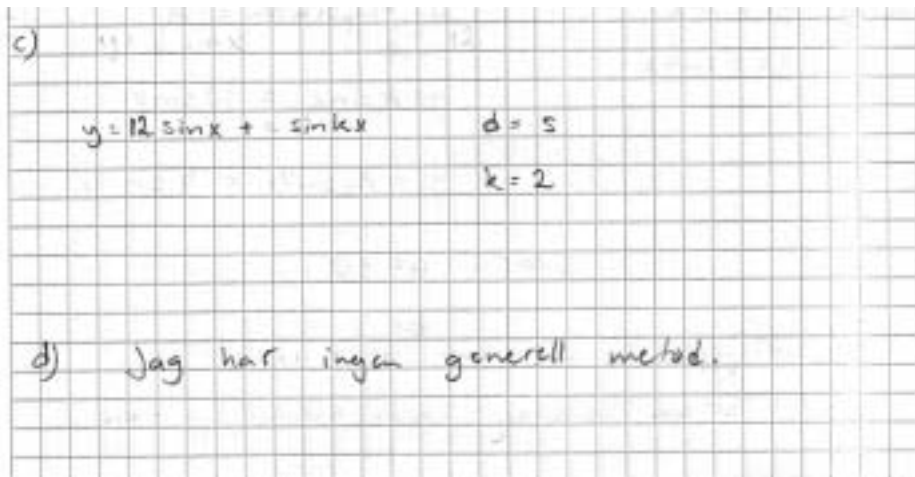 c)
y = 12 sin x + sin kx d = 5
k = 2
d) Jag har ingen generell metod.